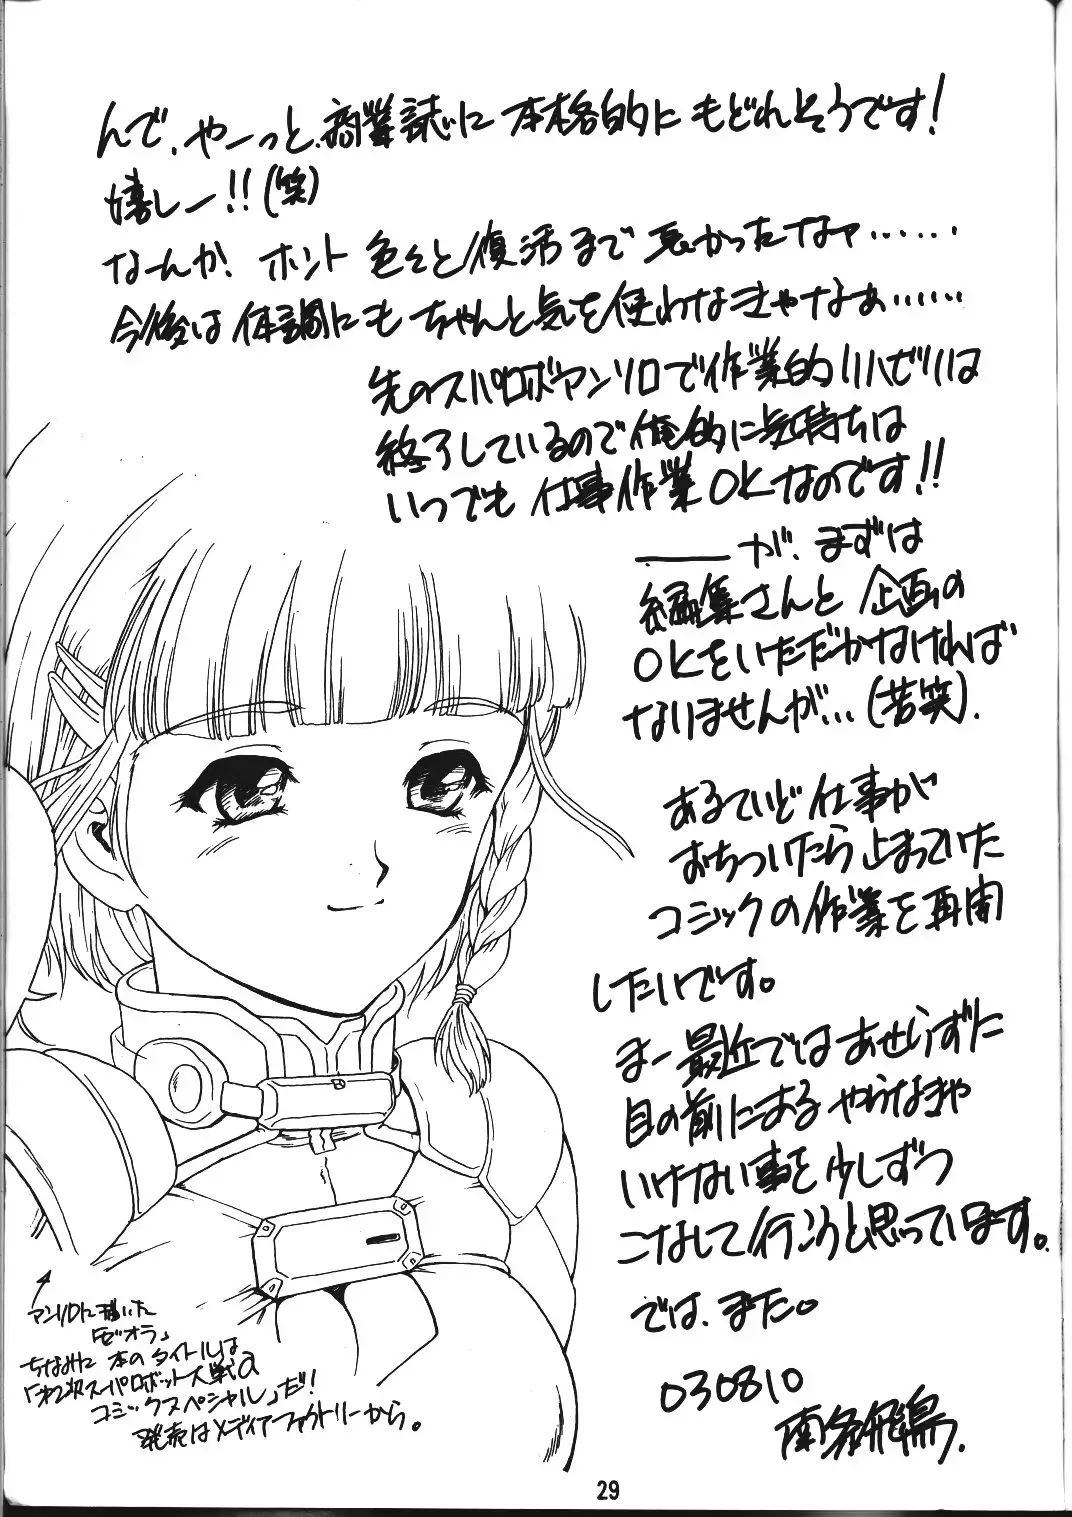 んで、やーっと、商業誌に本格的にもどれそうです!
嬉しー!!(笑)
なんか、ホント色々と復活まで長かったなァ……
今後は体調にもちゃんと気を使わなきゃなぁ……
先のスパロボアンソロで作業的リハビリは
終了しているので俺的に気持ちは
いつでも仕事作業OKなのです!!
――が、まずは
編集さんと企画の
OKをいただかなければ
なりませんが…(苦笑).
あるていど仕事が
おちついたら止まっていた
コミックの作業を再開
したいです。
まー最近ではあせらずに
目の前にあるやらなきゃ
いけない事を少しずつ
こなして行こうと思っています。
では、また。
030810
南条飛鳥.
アンソロに描いた
「ゼオラ」
ちなみに本のタイトルは
「第2次スーパーロボット大戦α
コミックスペシャル」だ!
発売はメディアファクトリーから。
29
B